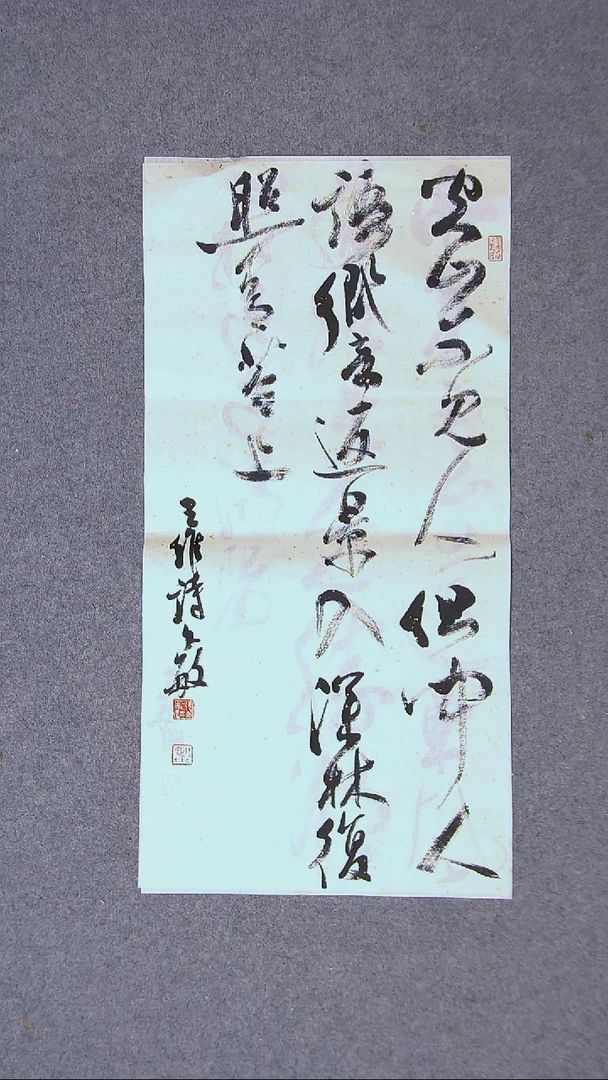 空山不见人但闻人
語響返景入深林復
照青苔上
王維詩 敏